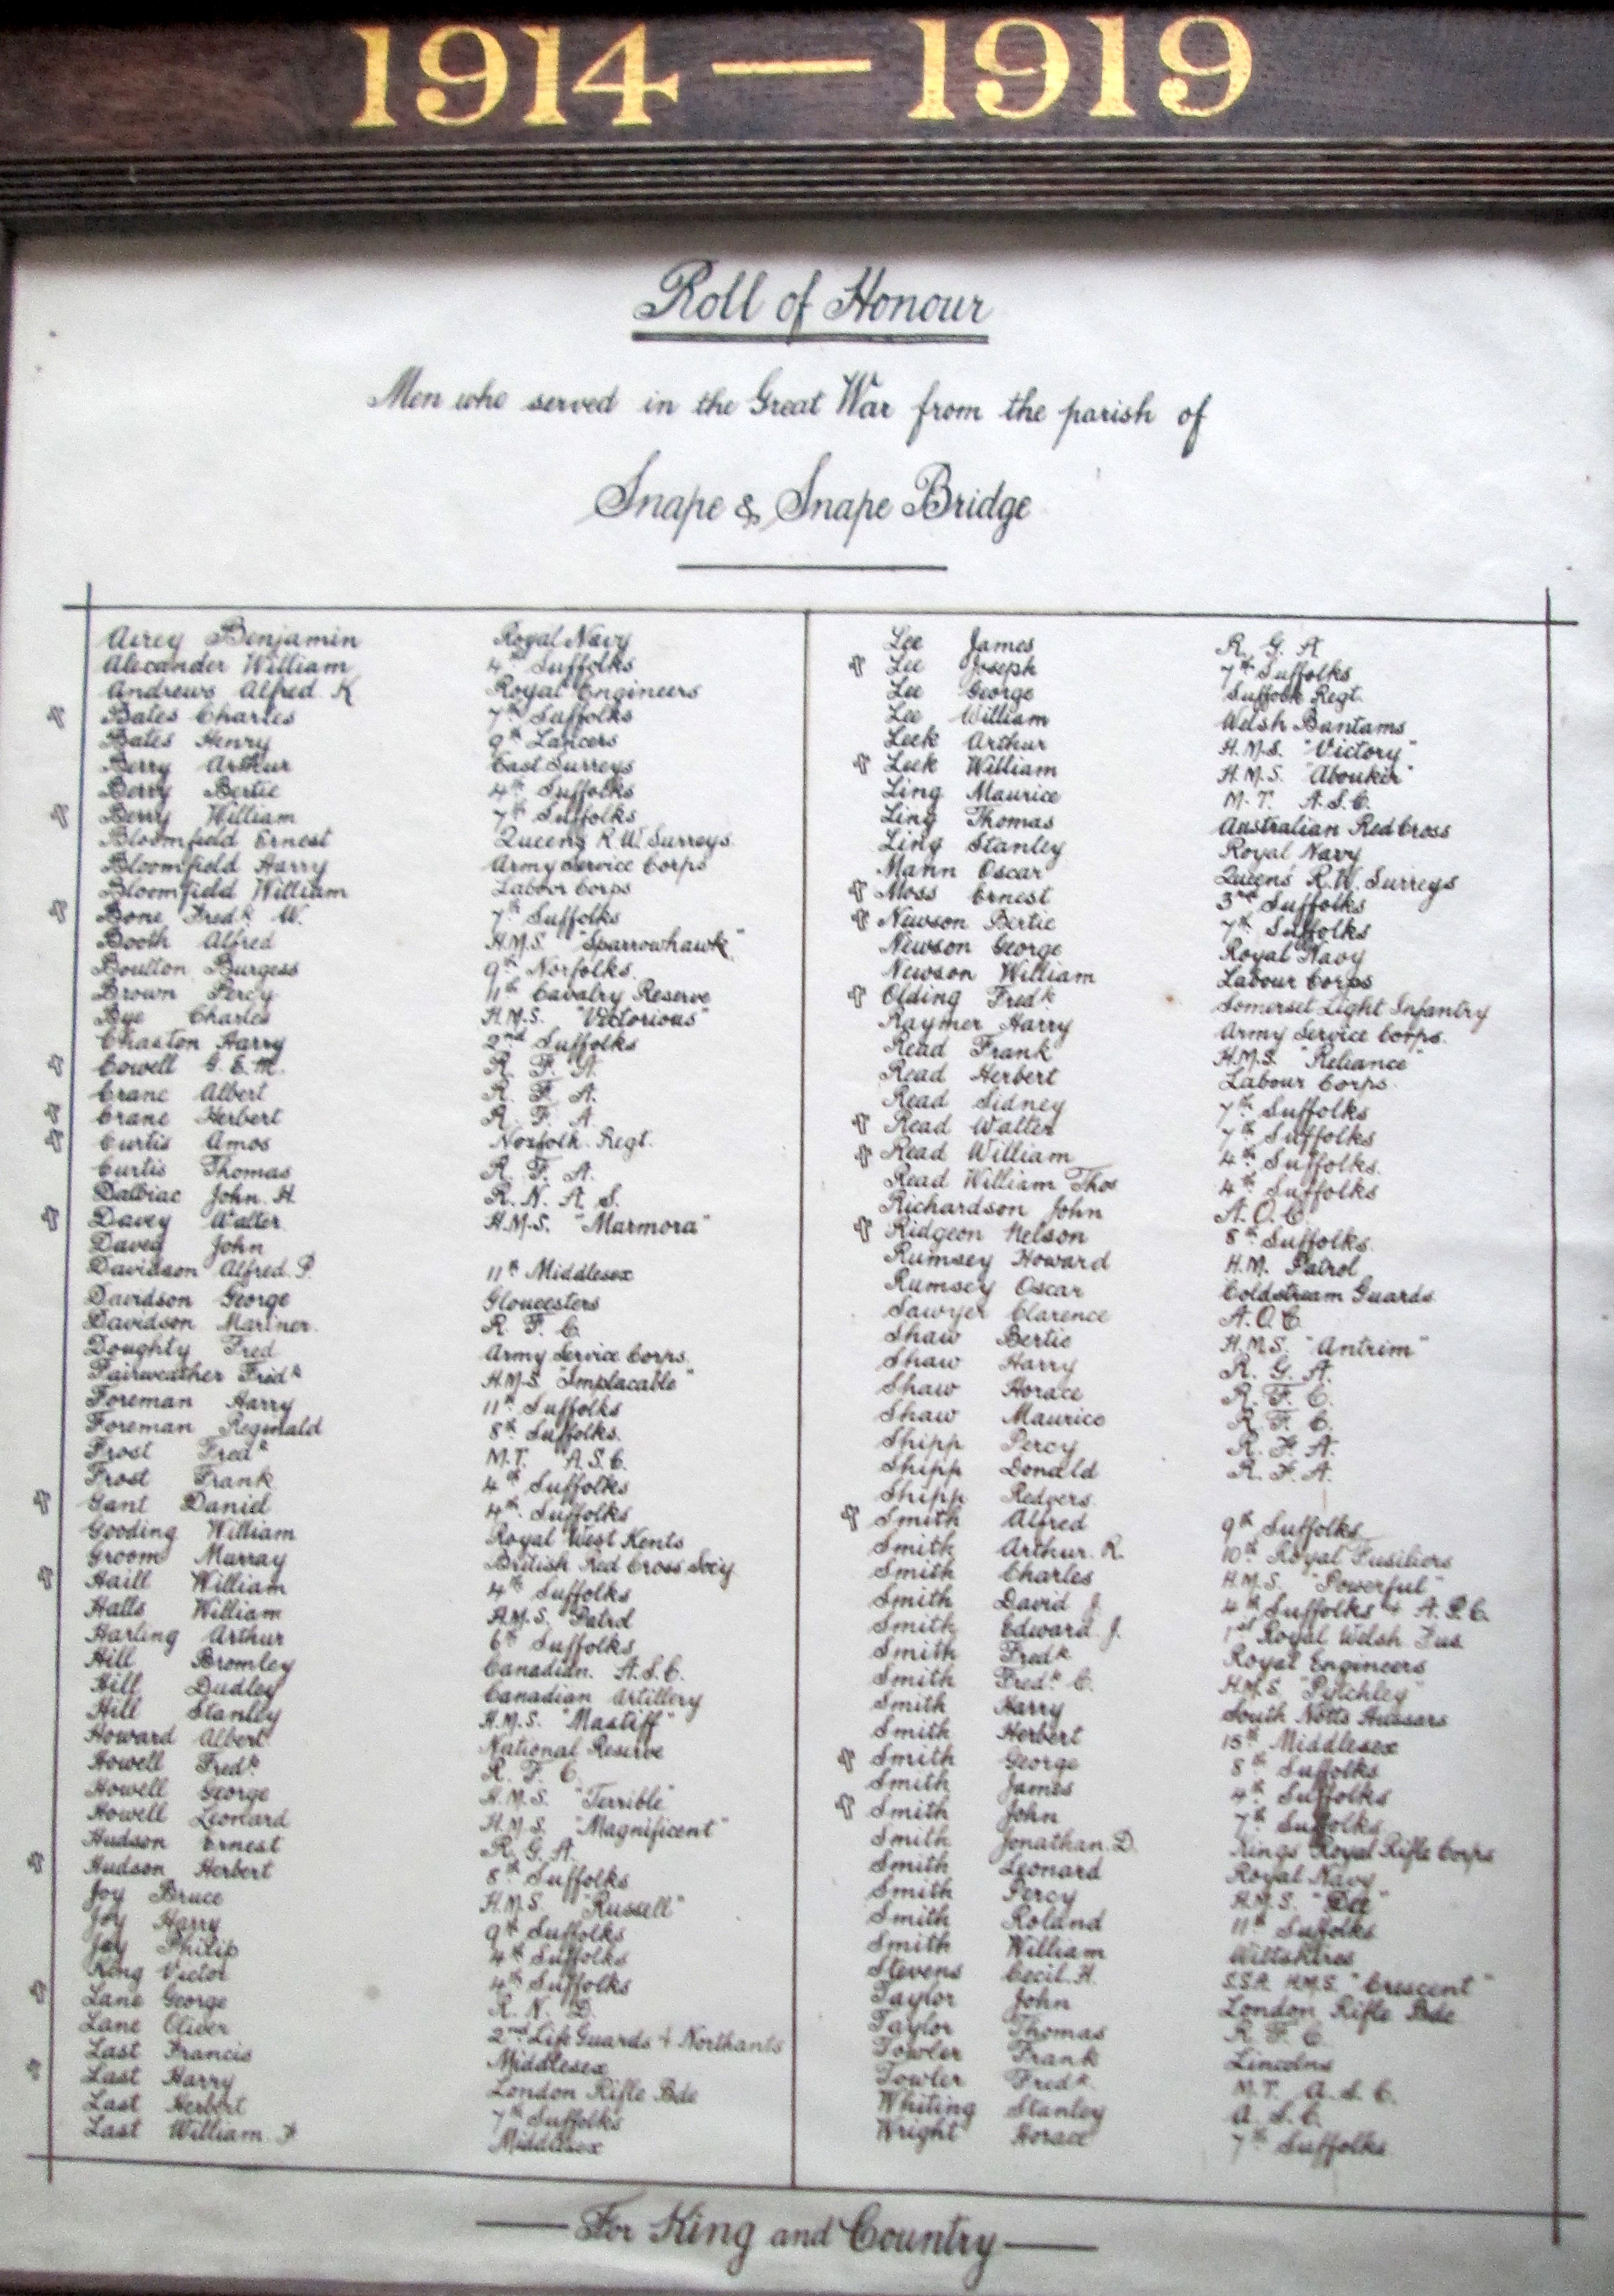 1914 — 1919
Roll of Honour
Men who served in the Great War from the parish of
Snape & Snape Bridge
Airey Benjamin Royal Navy
Alexander William 4th Suffolks
Andrews Alfred K Royal Engineers
Bates Charles 7th Suffolks
Bates Henry 9th Lancers
Berry Arthur East Surreys
Berry Bertie 4th Suffolks
Berry William 7th Suffolks
Bloomfield Ernest Queens R.W. Surreys
Bloomfield Harry Army Service Corps
Bloomfield William Labour Corps
Bone Fredk W. 7th Suffolks
Booth Alfred H.M.S. "Sparrowhawk"
Boulton Burgess 9th Norfolks.
Brown Percy 11th Cavalry Reserve
Bye Charles H.M.S. "Victorious"
Chaston Harry 2nd Suffolks
Cowell G.E.M. R.F.A.
Crane Albert R.F.A.
Crane Herbert R.F.A.
Curtis Amos Norfolk. Regt.
Curtis Thomas R.F.A.
Dalbiac John H. R.N.A.S.
Davey Walter H.M.S. "Marmora"
Davey John
Davidson Alfred P. 11th Middlesex
Davidson George Gloucesters
Davidson Mariner. R.F.C.
Doughty Fred Army Service Corps.
Fairweather Fredk H.M.S. "Implacable"
Foreman Harry 11th Suffolks
Foreman Reginald 8th Suffolks.
Frost Fredk M.T. A.S.C.
Frost Frank 4th Suffolks
Gant Daniel 4th Suffolks
Gooding William Royal West Kents
Groom Murray British Red Cross Socy
Haill William 4th Suffolks
Halls William H.M.S. Patrol
Harling Arthur 6th Suffolks
Hill Bromley Canadian. A.S.C.
Hill Dudley Canadian Artillery
Hill Stanley H.M.S. "Mastiff"
Howard Albert National Reserve
Howell Fredk R.F.C.
Howell George H.M.S. "Terrible"
Howell Leonard H.M.S. "Magnificent"
Hudson Ernest R.G.A.
Hudson Herbert 8th Suffolks
Joy Bruce H.M.S. "Russell"
Joy Harry 9th Suffolks
Joy Philip 4th Suffolks
King Victor 4th Suffolks
Lane George R.N.D.
Lane Oliver 2nd Life Guards + Northants
Last Francis Middlesex
Last Harry London Rifle Bde
Last Herbert 7th Suffolks
Last William. F Middlesex
Lee James R.G.A
Lee Joseph 7th Suffolks
Lee George Suffolk Regt.
Lee William Welsh Bantams
Leek Arthur H.M.S. "Victory"
Leek William H.M.S. "Aboukir"
Ling Maurice M.T. A.S.C.
Ling Thomas Australian Red Cross
Ling Stanley Royal Navy
Mann Oscar Queens R.W. Surreys
Moss Ernest 3rd Suffolks
Newson Bertie 7th Suffolks
Newson George Royal Navy
Newson William Labour Corps
Olding Fredk Somerset Light Infantry
Raymer Harry Army Service Corps.
Read Frank H.M.S. "Reliance"
Read Herbert Labour Corps.
Read Sidney 7th Suffolks
Read Walter 7th Suffolks
Read William 4th Suffolks.
Read William Thos 4th Suffolks
Richardson John A.O.C.
Ridgeon Nelson 8th Suffolks.
Rumsey Howard H.M. Patrol
Rumsey Oscar Coldstream Guards
Sawyer Clarence A.O.C.
Shaw Bertie H.M.S. "Antrim"
Shaw Harry R.G.A.
Shaw Horace R.F.C.
Shaw Maurice R.F.C.
Shipp Percy R.F.A.
Shipp Donald R.F.A.
Shipp Redvers.
Smith Alfred 9th Suffolks
Smith Arthur. R. 10th Royal Fusiliers
Smith Charles H.M.S. "Powerful"
Smith David J. 4th Suffolks + A.P.C.
Smith Edward. J. 1st Royal Welsh Fus.
Smith Fredk Royal Engineers
Smith Fredk C. H.M.S. "Pytchley"
Smith Harry South Notts Hussars
Smith Herbert 18th Middlesex
Smith George 8th Suffolks
Smith James 4th Suffolks
Smith John 7th Suffolks
Smith Jonathan. D. Kings Royal Rifle Corps
Smith Leonard Royal Navy
Smith Percy H.M.S. "Dee"
Smith Roland 11th Suffolks
Smith William Wiltshires
Stevens Cecil. H. S.S.A. H.M.S. "Crescent"
Taylor John London Rifle Bde
Taylor Thomas R.F.C.
Towler Frank Lincolns
Towler Fredk. M.T. A.S.C.
Whiting Stanley A.S.C.
Wright Horace 7th Suffolks
— For King and Country —